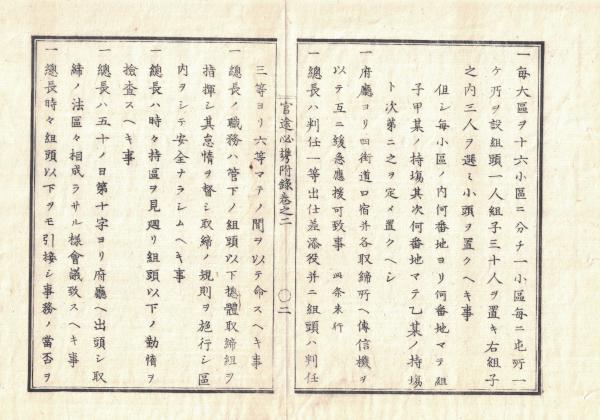 一每大區ヲ十六小區ニ分チ一小區每ニ屯所一
ケ所ヲ設組頭一人組子三十人ヲ置キ右組子
之内三人ヲ選ミ小頭ヲ置クヘキ事
但シ每小區ノ内何番地ヨリ何番地マテ組
子甲某ノ持場其次何番地マテ乙某ノ持場
ト次第ニ之ヲ定メ置クヘシ
一府廳ヨリ四街道口宿并各取締所ヘ傳信機ヲ
以テ互ニ緩急應援可致事 此条未行
一總長ハ判任一等出仕差添役并ニ組頭ハ判任
官途必携附錄卷之二
〇二
三等ヨリ六等マテノ間ヲ以テ命スヘキ事
一總長ノ職務ハ管下ノ組頭以下總體取締組ヲ
指揮シ其怠惰ヲ督シ取締ノ規則ヲ施行シ區
内ヲシテ安全ナラシムヘキ事
一總長ハ時々持區ヲ見廻リ組頭以下ノ勤惰ヲ
檢査スヘキ事
一總長ハ五十ノ日第十字ヨリ府廳ヘ出頭シ取
締ノ法區々相成ラサル樣會議致スヘキ事
一總長時々組頭以下ヲモ引接シ事務ノ當否ヲ